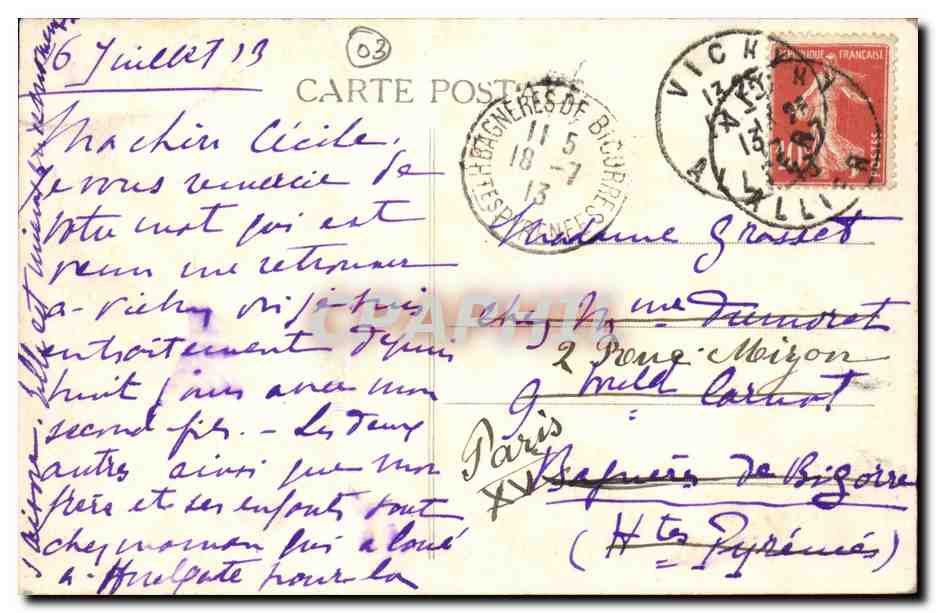 6 Juillet 13
03
CARTE POSTALE
Ma chère Cécile,
je vous remercie de
votre mot qui est
venu me retrouver
à Vichy où je suis
en traitement depuis
huit jours avec mon
second fils. - Les deux
autres ainsi que mon
frère et ses enfants sont
chez maman qui a loué
à Houlgate pour la
saison. Elle est mieux
BAGNERES DE BIGORRE
11 5
18 - 7
13
HTES PYRENEES
VICHY
13
ALLIER
REPUBLIQUE FRANÇAISE
POSTES
10
Madame Grasset
chez Mme Dumoret
2 Rue Mizon
9 Bould Carnot
Paris
XV
Bagnères de Bigorre
(Htes Pyrénées)
CPAPHIL